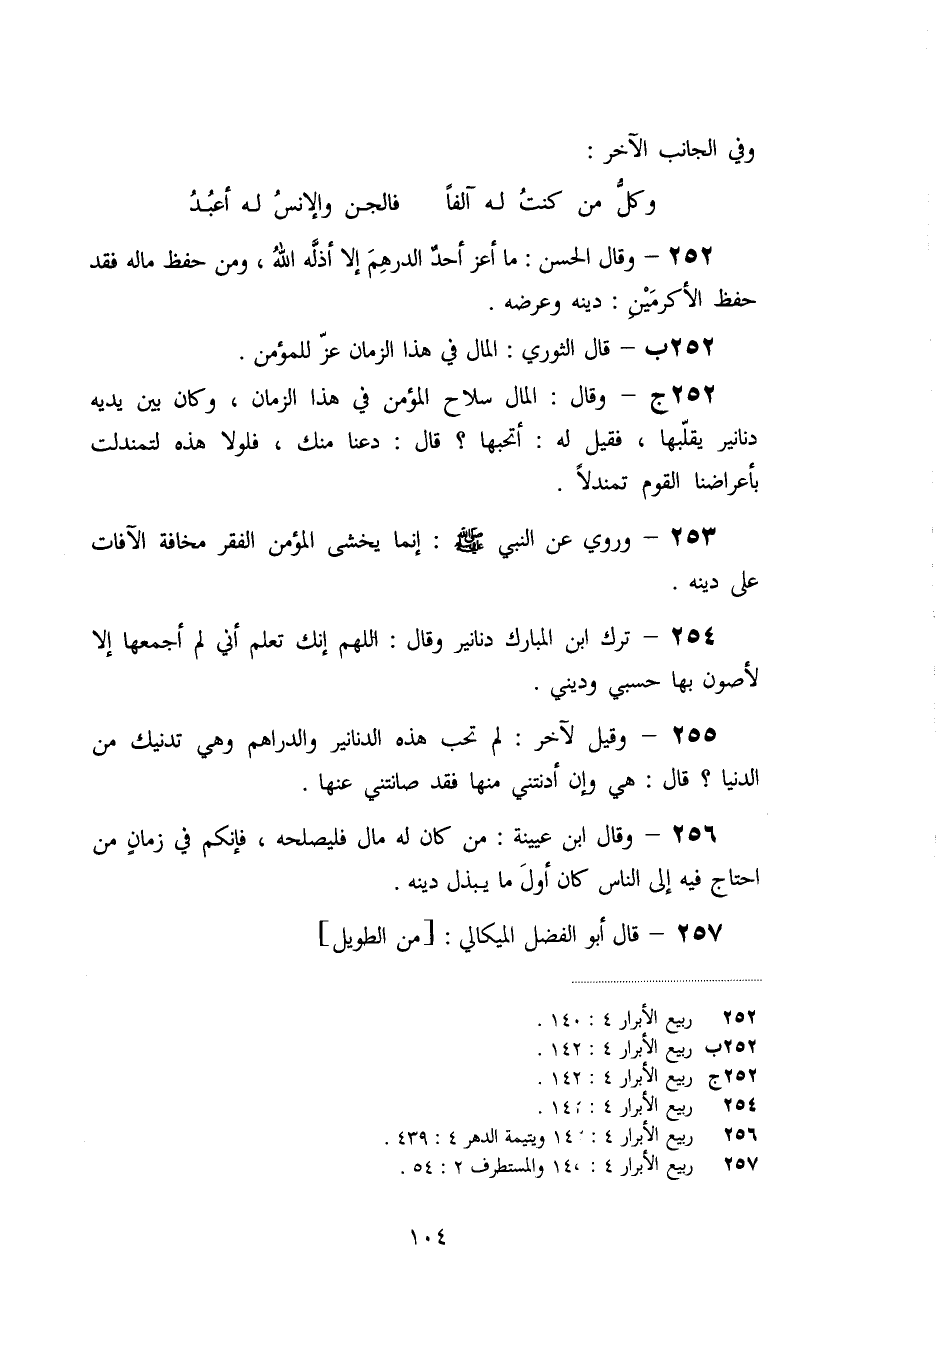 وفي الجانب الآخر :
وكلُّ من كنتُ لـه آلفاً فالجـن والإنسُ لـه أعبُـدُ
٢٥٢ – وقال الحسن : ما أعز أحدٌ الدرهِمَ إلا أذلَّه اللهُ ، ومن حفظ ماله فقد
حفظ الأكرمَيْنِ : دينه وعرضه .
٢٥٢ب – قال الثوري : المال في هذا الزمان عزّ للمؤمن .
٢٥٢ج – وقال : المال سلاح المؤمن في هذا الزمان ، وكان بين يديه
دنانير يقلّبها ، فقيل له : أتحبها ؟ قال : دعنا منك ، فلولا هذه لتمندلت
بأعراضنا القوم تمندلاً .
٢٥٣ – وروي عن النبي ﷺ : إنما يخشى المؤمن الفقر مخافة الآفات
على دينه .
٢٥٤ – ترك ابن المبارك دنانير وقال : اللهم إنك تعلم أني لم أجمعها إلا
لأصون بها حسبي وديني .
٢٥٥ – وقيل لآخر : لم تحب هذه الدنانير والدراهم وهي تدنيك من
الدنيا ؟ قال : هي وإن أدنتني منها فقد صانتني عنها .
٢٥٦ – وقال ابن عيينة : من كان له مال فليصلحه ، فإنكم في زمانٍ من
احتاج فيه إلى الناس كان أولَ ما يـبذل دينه .
٢٥٧ – قال أبو الفضل الميكالي : [من الطويل]
٢٥٢ ربيع الأبرار ٤ : ١٤٠ .
٢٥٢ب ربيع الأبرار ٤ : ١٤٢ .
٢٥٢ج ربيع الأبرار ٤ : ١٤٢ .
٢٥٤ ربيع الأبرار ٤ :
٢٥٦ ربيع الأبرار ٤ : ويتيمة الدهر ٤ : ٤٣٩ .
٢٥٧ ربيع الأبرار ٤ : ١٤٠ والمستطرف ٢ : ٥٤ .
١٠٤